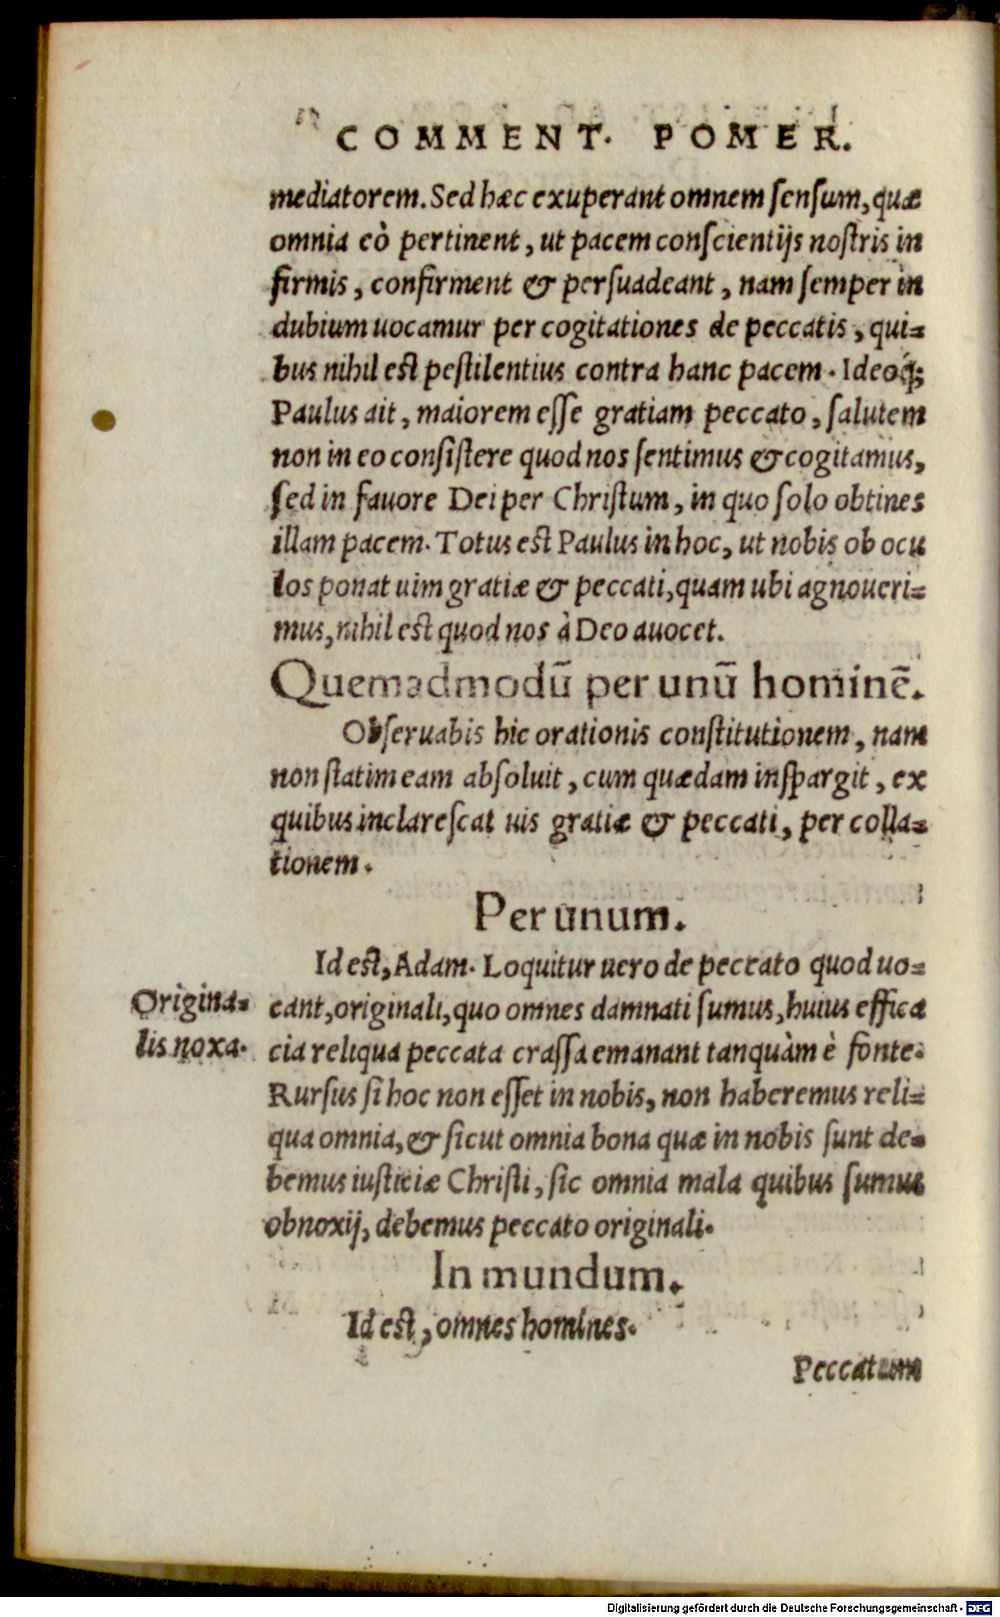 COMMENT. POMER.
mediatorem. Sed hæc exuperant omnem ſenſum, quæ
omnia eò pertinent, ut pacem conſcientijs noſtris in
firmis, confirment & perſuadeant, nam ſemper in
dubium uocamur per cogitationes de peccatis, qui=
bus nihil eſt peſtilentius contra hanc pacem. Ideoq́;
Paulus ait, maiorem eſſe gratiam peccato, ſalutem
non in eo conſiſtere quod nos ſentimus & cogitamus,
ſed in fauore Dei per Chriſtum, in quo ſolo obtines
illam pacem. Totus eſt Paulus in hoc, ut nobis ob ocu
los ponat uim gratiæ & peccati, quam ubi agnoueri=
mus, nihil eſt quod nos à Deo auocet.
Quemadmodū per unū hominē.
Obſeruabis hic orationis conſtitutionem, nam
non ſtatim eam abſoluit, cum quædam inſpargit, ex
quibus inclareſcat uis gratiæ & peccati, per colla=
tionem.
Per unum.
Id eſt, Adam. Loquitur uero de peccato quod uo=
Origina=
lis noxa.
cant, originali, quo omnes damnati ſumus, huius effica
cia reliqua peccata craſſa emanant tanquàm è fonte.
Rurſus ſi hoc non eſſet in nobis, non haberemus reli=
qua omnia, & ſicut omnia bona quæ in nobis ſunt de=
bemus iuſticiæ Chriſti, ſic omnia mala quibus ſumus
obnoxij, debemus peccato originali.
In mundum.
Id eſt, omnes homines.
Peccatum
Digitalisierung gefördert durch die Deutsche Forschungsgemeinschaft - DFG